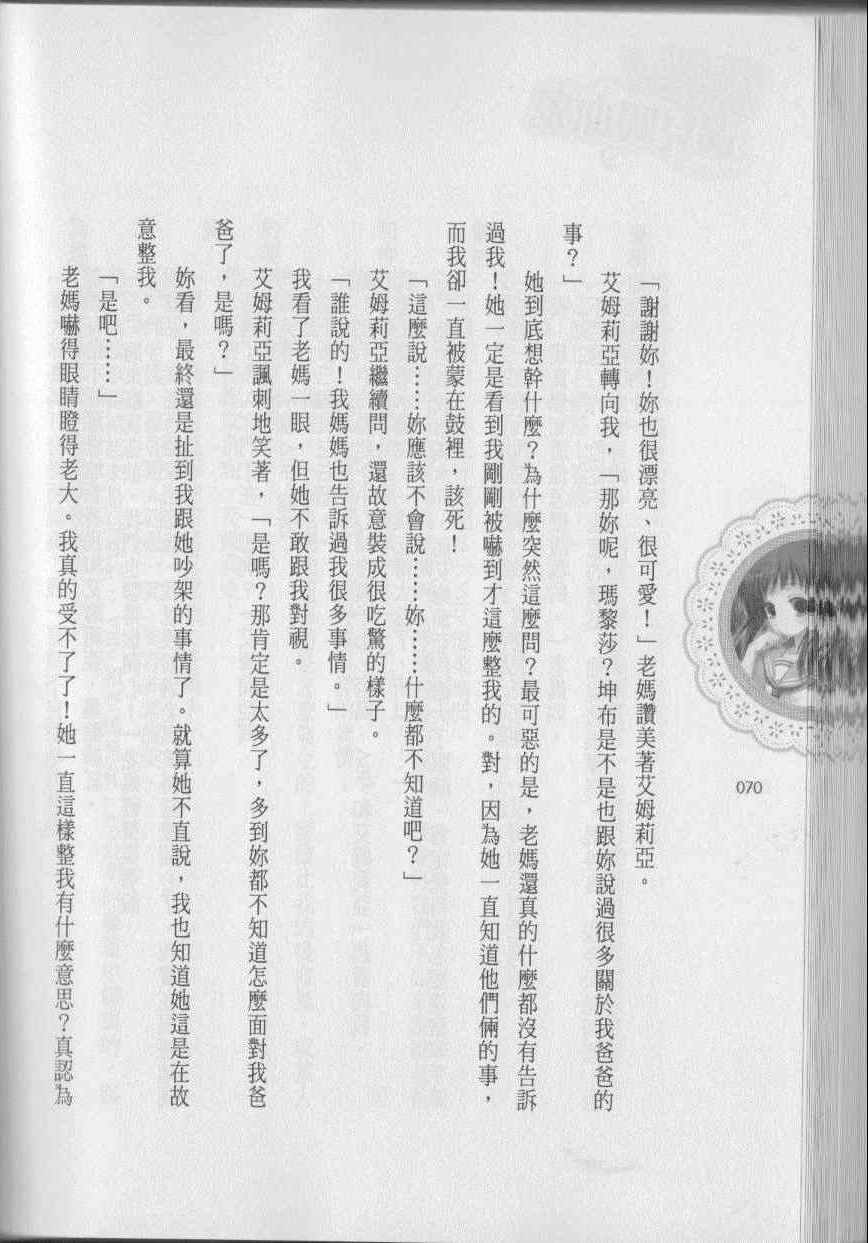 「謝謝妳！妳也很漂亮、很可愛！」老媽讚美著艾姆莉亞。
艾姆莉亞轉向我，「那妳呢，瑪黎莎？坤布是不是也跟妳說過很多關於我爸爸的
事？」
她到底想幹什麼？為什麼突然這麼問？最可惡的是，老媽還真的什麼都沒有告訴
過我！她一定是看到我剛剛被嚇到才這麼整我的。對，因為她一直知道他們倆的事，
而我卻一直被蒙在鼓裡，該死！
「這麼說……妳應該不會說……妳……什麼都不知道吧？」
艾姆莉亞繼續問，還故意裝成很吃驚的樣子。
「誰說的！我媽媽也告訴過我很多事情。」
我看了老媽一眼，但她不敢跟我對視。
艾姆莉亞諷刺地笑著，「是嗎？那肯定是太多了，多到妳都不知道怎麼面對我爸
爸了，是嗎？」
妳看，最終還是扯到我跟她吵架的事情了。就算她不直說，我也知道她這是在故
意整我。
「是吧……」
老媽嚇得眼睛瞪得老大。我真的受不了了！她一直這樣整我有什麼意思？真認為
070